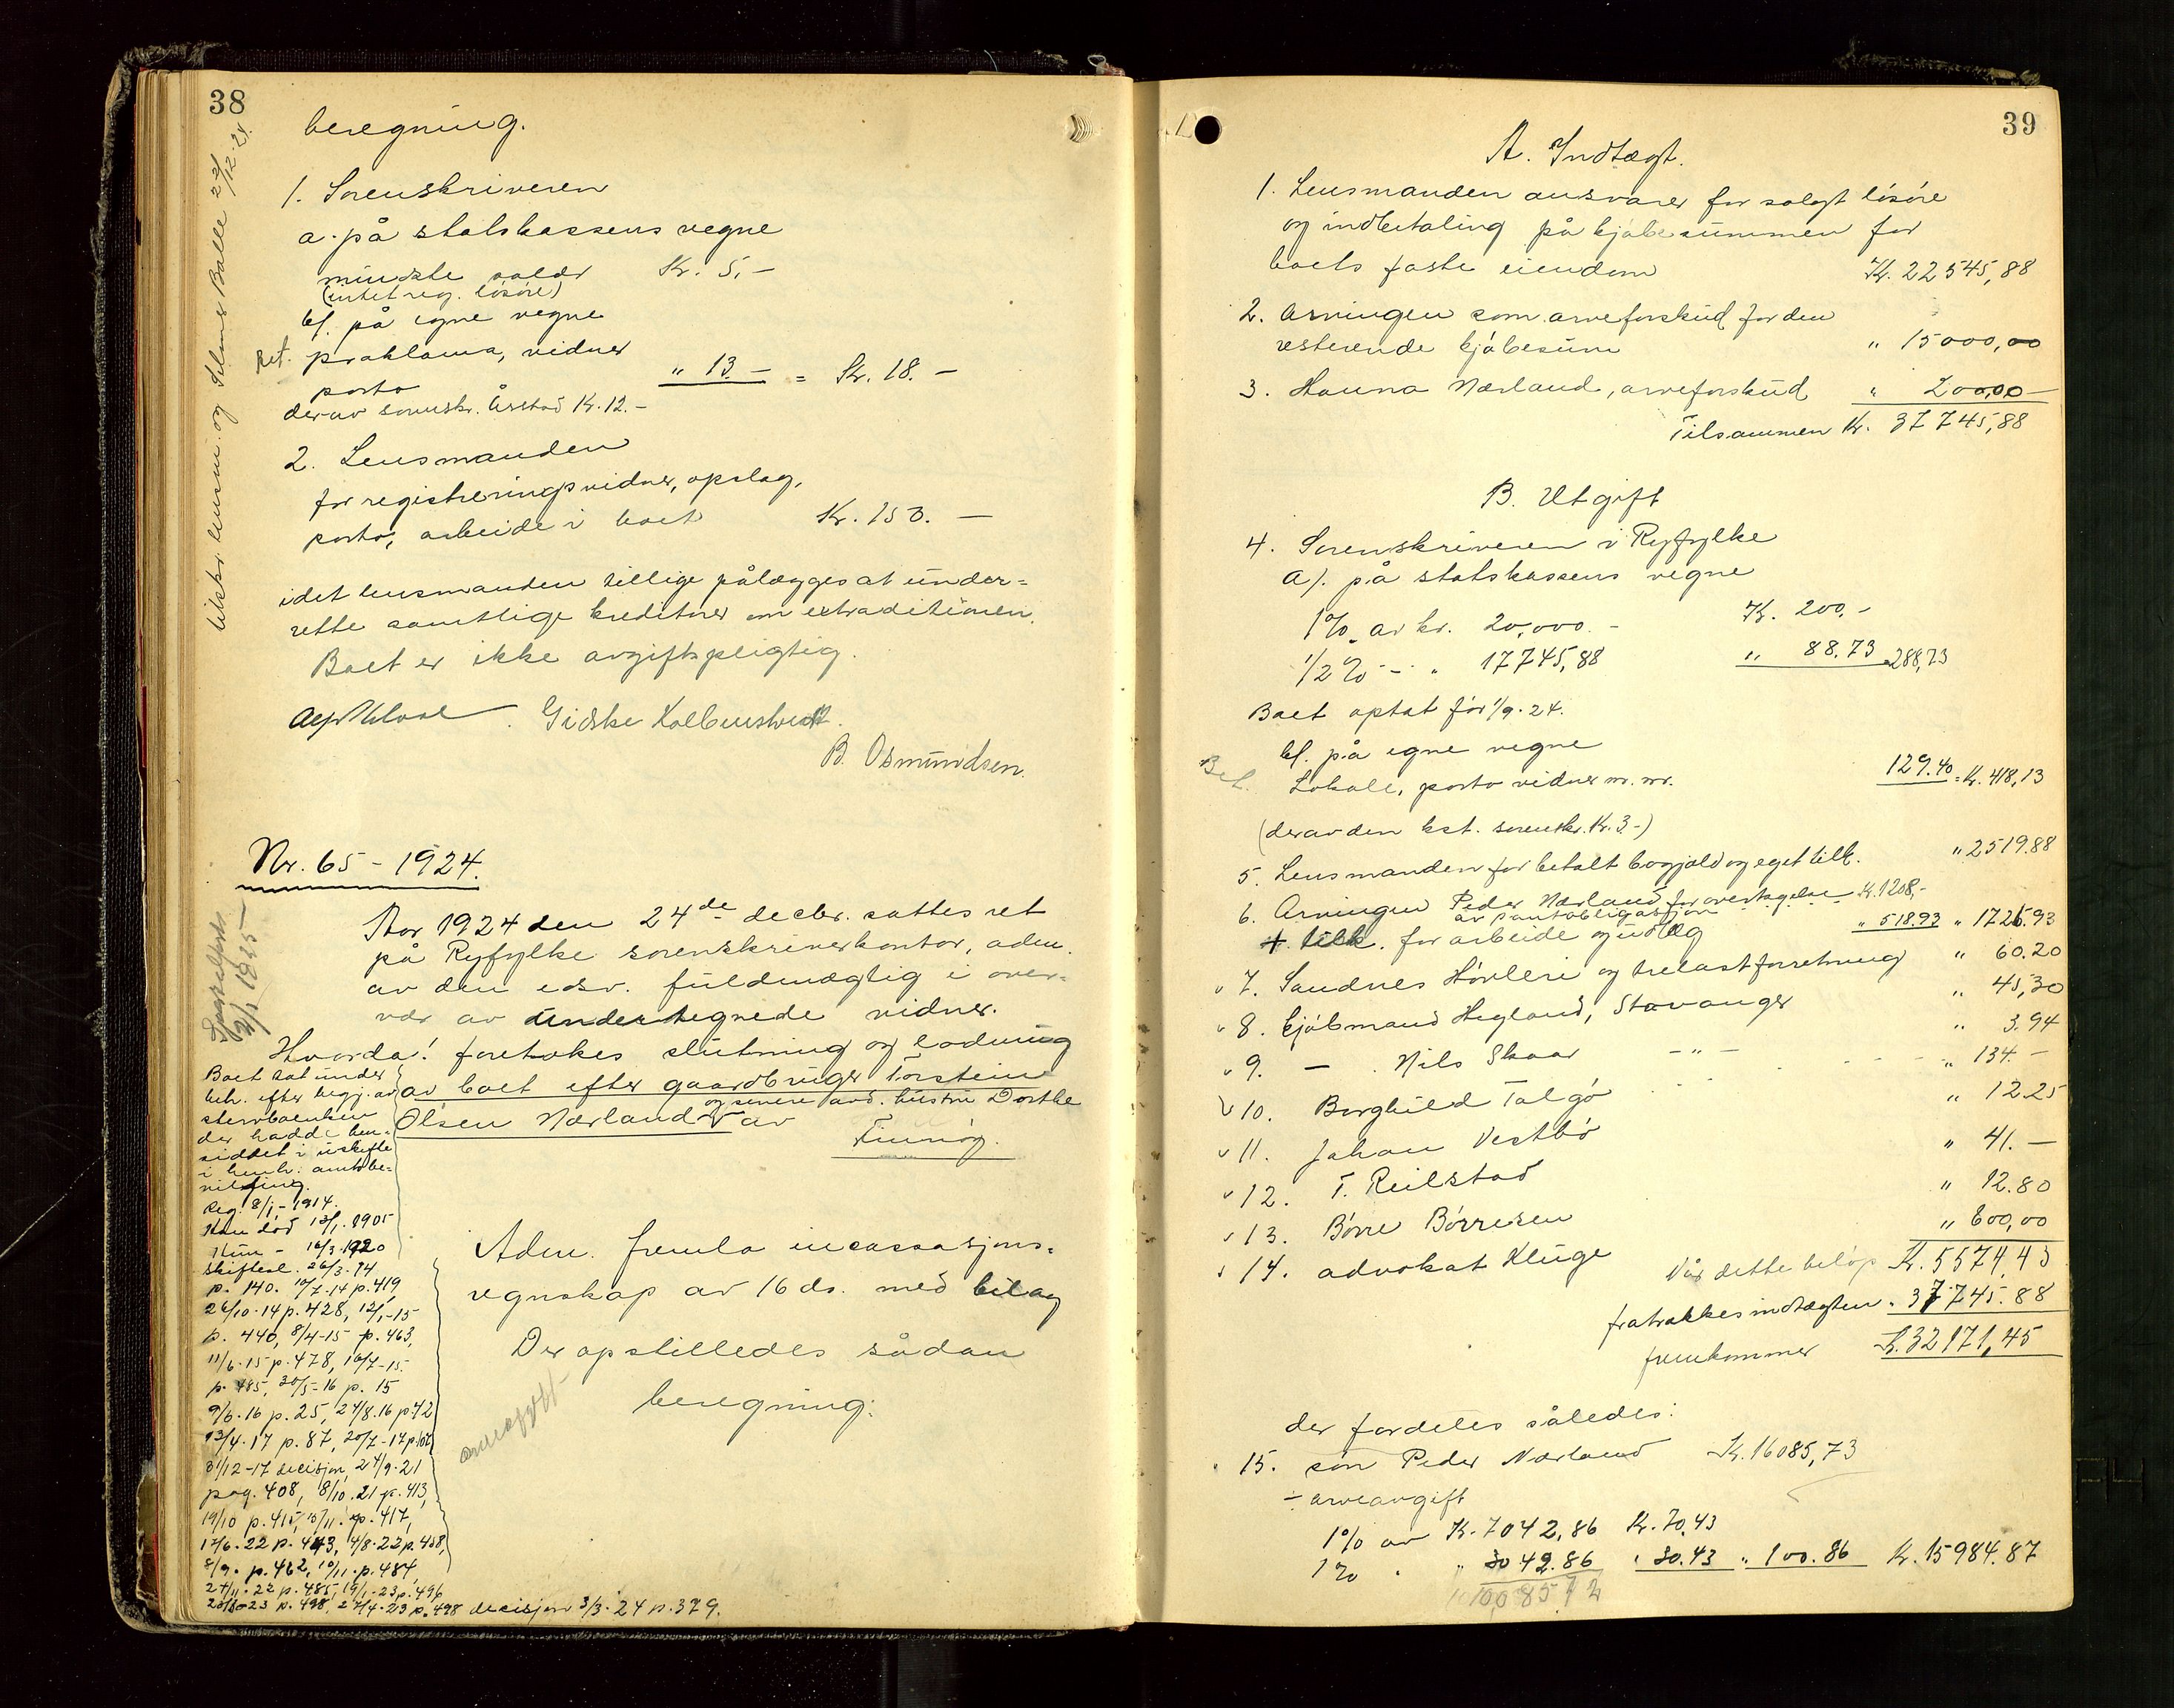 38
beregning.
1. Sorenskriveren
a. på statskassens vegne
mindste saldr Kr. 5,-
(intet reg. lösöre)
b/. på egne vegne
Ret. proklama, vidner
porto " 13.- = Kr. 18.-
derav sorenskr. Årstad Kr. 12.-
2. Lensmanden
for registreringsvidner, opslag,
porto, arbeide i boet Kr. 153.-
idet lensmanden tillige pålægges at under=
rette samtlige kreditorer om extraditionen.
Boet er ikke avgiftspligtig.
Gidske Kolbenstvedt.
B. Osmundsen.
Nr. 65 - 1924.
Aar 1924 den 24de decbr. sattes ret
på Ryfylke sorenskriverkontor, adm.
av den edsv. fuldmægtig i over=
vær av undertegnede vidner.
Hvorda! foretokes slutning og lodning
av boet efter gaardbruger Torstein
og senere avd. hustru Dorthe
Olsen Nærland av
Finnöy.
Boet sat under
beh. efter begj. av
stervboenken
der hadde hen-
siddet i uskifte
i henh. amtsbe-
vilgning.
Reg. 8/1-1914.
Han död 13/1.1905
Hun - 16/3.1920
Skiftesl. 26/3.14
p. 140. 10/7.14 p. 419,
26/10.14 p. 428, 12/1-15
p. 440, 8/4-15 p. 463,
11/6.15 p. 478, 16/7-15.
p. 485, 30/5-16 p. 15
9/6.16 p. 25, 24/8.16 p. 42
13/4.17 p. 87, 20/7-17 p. 102
31/12-17 decisjon, 27/9.21
pag. 408, 8/10.21 p. 413,
19/10 p. 415, p. 417,
17/6.22 p. 443, 4/8.22 p. 458,
8/9. p. 462, 10/11. p. 484,
27/11.22 p. 485, 19/1-23 p. 496,
p. 498, 27/4.23 p. 498 decisjon 3/3.24 p. 379.
Adm. fremla incassasjons=
regnskap av 16 ds. med bilag
Der opstilledes sådan
beregning:
39
A. Indtægt.
1. Lensmanden ansvarer for solgt lösöre
og indbetaling på kjöbesummen for
boets faste eiendom Kr. 22545,88
2. Arvingen som arveforskud for den
resterende kjöbesum " 15000,00
3. Hanna Nærland, arveforskud " 200,00
Tilsammen Kr. 37745,88
B. Utgift
4. Sorenskriveren i Ryfylke
a/. på statskassens vegne
1% av kr. 20,000.- Kr. 200,-
1/2% - " 17745,88 " 88.73 288,73
Boet optat för 1/9.24.
b/. på egne vegne
Bet. Lokale, porto vidner m. m. 129.40 = Kr. 418,13
(derav den kst. sorenskr. Kr. 3-)
5. Lensmanden for betalt bogjæld og eget tilk. " 2519.88
6. Arvingen Peder Nærland for overtagelse Kr. 1208,-
av pantobligasjon
+ tilk. for arbeide og utlæg " 518.93 " 1726.93
7. Sandnes Hövleri og trelastforretning " 60.20
8. Kjöbmand Hegland, Stavanger " 45,30
9. - Nils Skaar -"- " 3.94
10. Borghild Talgö " 134.-
11. Johan Vestbö " 12.25
12. T. Reilstad " 41.-
13. Börre Börresen " 12.80
14. advokat Kluge " 600,00
Når dette belöp Kr. 5574,43
fratrækkes indtægten " 37745.88
fremkommer Kr. 32171,45
der fordeles således:
15. sön Peder Nærland Kr. 16085,73
÷ arveavgift
1% av Kr. 7042,86 Kr. 70,43
1% " " 3042.86 " 30.43 " 100.86 Kr. 15984.87